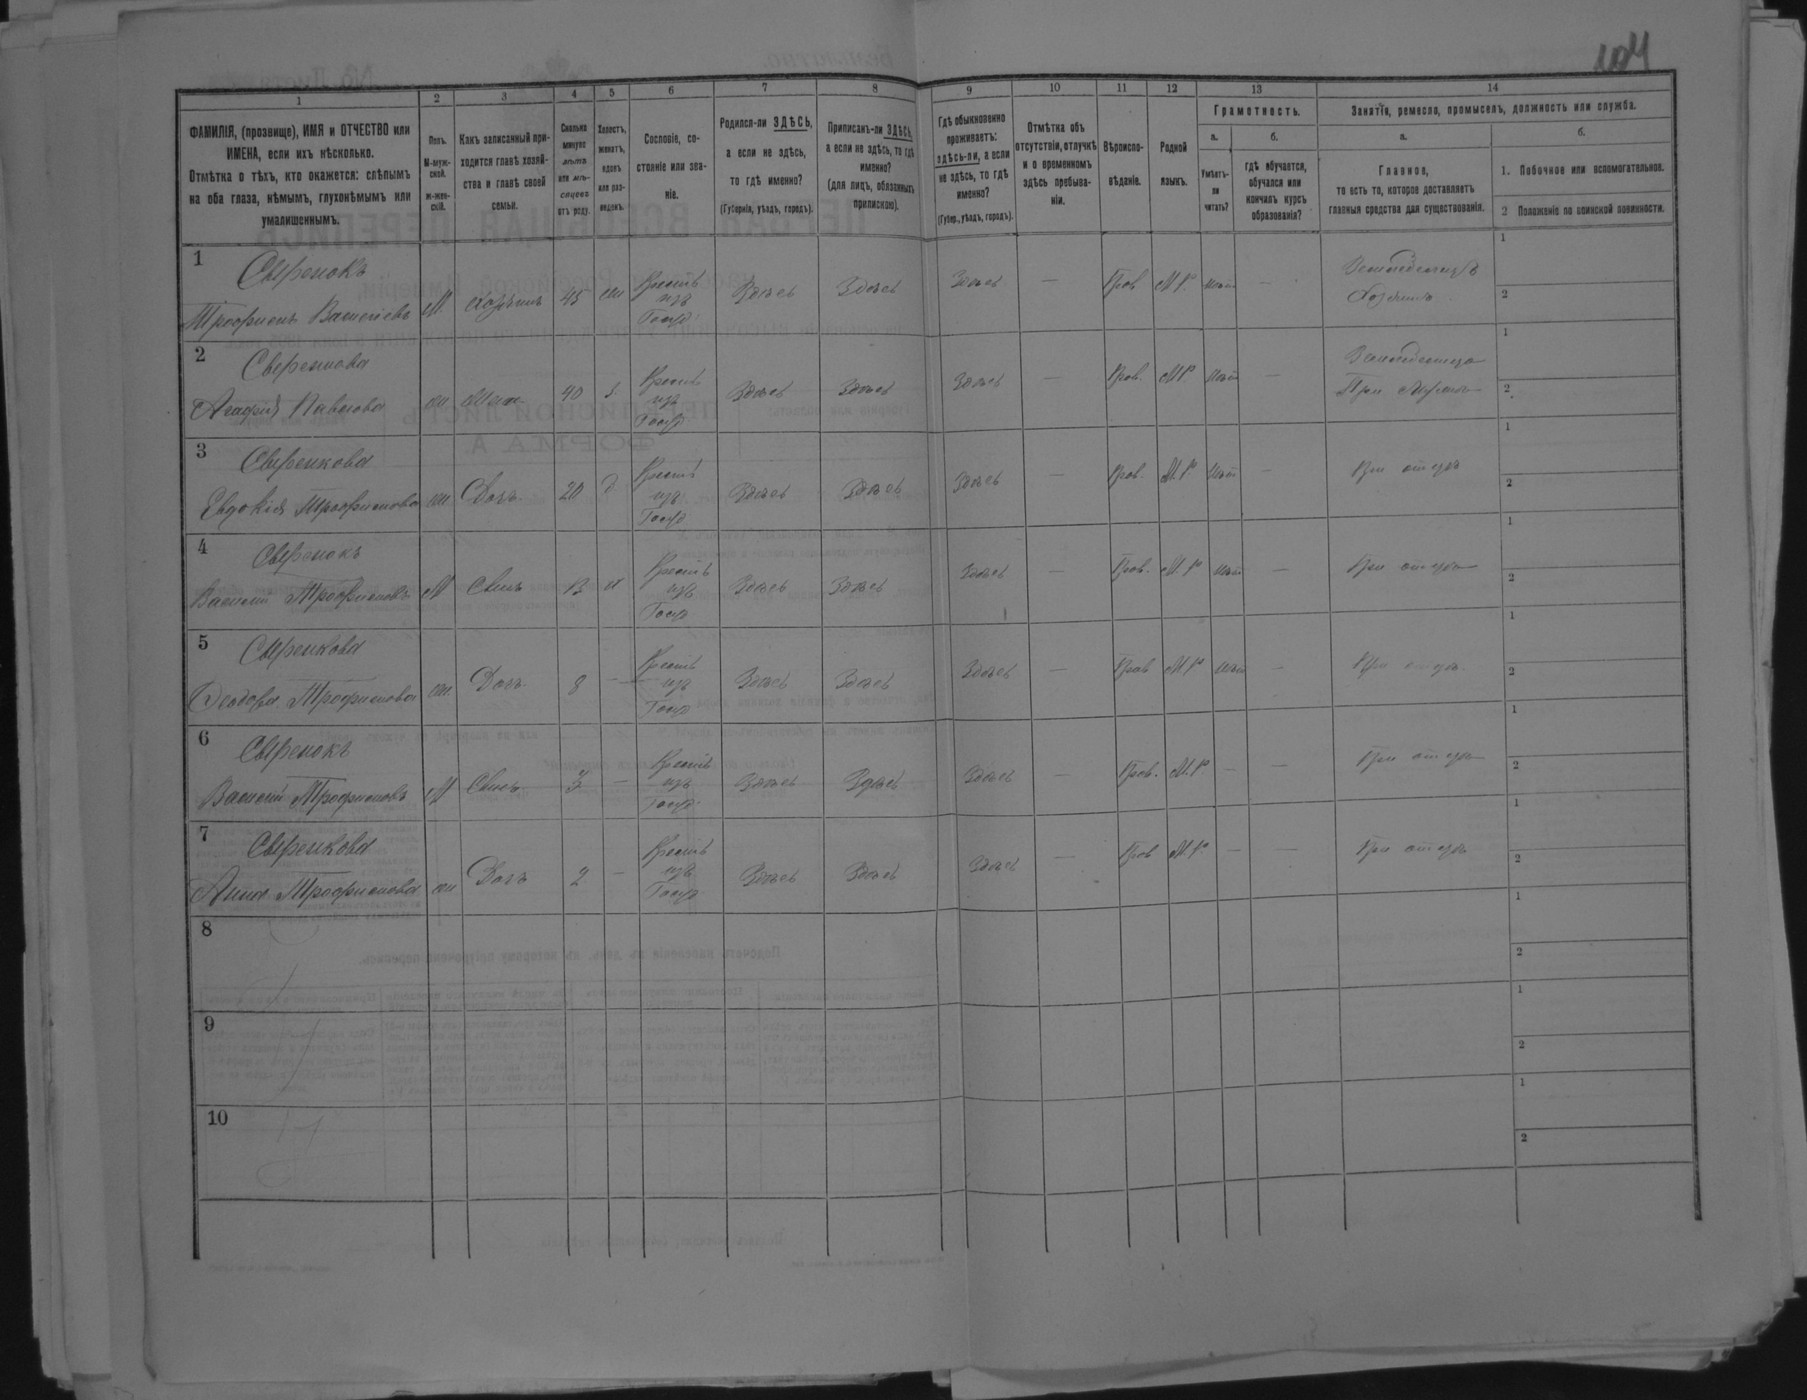 104
1 2 3 4 5 6 7 8 9 10 11 12 13 14
ФАМИЛІЯ, (прозвище), ИМЯ и ОТЧЕСТВО или ИМЕНА, если ихъ нѣсколько.
Отмѣтка о тѣхъ, кто окажется: слѣпымъ на оба глаза, нѣмымъ, глухонѣмымъ или умалишеннымъ.
Полъ.
М-мужской.
ж-женскій.
Какъ записанный приходится главѣ хозяйства и главѣ своей семьи.
Сколько минуло лѣтъ или мѣсяцевъ отъ роду.
Холостъ, женатъ, вдовъ или разведенъ.
Сословіе, состояніе или званіе.
Родился-ли ЗДѢСЬ, а если не здѣсь, то гдѣ именно?
(Губернія, уѣздъ, городъ).
Приписанъ-ли ЗДѢСЬ, а если не здѣсь, то гдѣ именно?
(для лицъ, обязанныхъ припискою).
Гдѣ обыкновенно проживаетъ:
здѣсь-ли, а если не здѣсь, то гдѣ именно?
(Губер., уѣздъ, городъ).
Отмѣтка объ отсутствіи, отлучкѣ и о временномъ здѣсь пребываніи.
Вѣроисповѣданіе.
Родной языкъ.
Грамотность.
а.
Умѣетъ-ли читать?
б.
гдѣ обучается, обучался или кончилъ курсъ образованія?
Занятія, ремесло, промыселъ, должность или служба.
а.
Главное,
то есть то, которое доставляетъ главныя средства для существованія.
б.
1. Побочное или вспомогательное.
2 Положеніе по воинской повинности.
1 Сыренокъ
Трофимъ Васильевъ М. хозяинъ 45 ж Крестъ изъ Госуд. Здѣсь Здѣсь Здѣсь — Прав М.Р. — Земледелецъ Хозяинъ 1 2
2 Сыренкова
Агафія Павлова ж Жена 40 з. Крестъ изъ Госуд Здѣсь Здѣсь Здѣсь — Прав. М.Р. — При мужѣ 1 2
3 Сыренкова
Евдокія Трофимова ж Дочь 20 д Крестъ изъ Госуд Здѣсь Здѣсь Здѣсь — Прав. М.Р. — При отцѣ 1 2
4 Сыренокъ
Василій Трофимовъ М Сынъ 13 Крестъ изъ Госуд Здѣсь Здѣсь Здѣсь — Прав. М.Р. — При отцѣ 1 2
5 Сыренкова
Ѳеодора Трофимова ж Дочь 8 — Крестъ изъ Госуд Здѣсь Здѣсь Здѣсь — Прав М.Р. — При отцѣ 1 2
6 Сыренокъ
Василій Трофимовъ М Сынъ 3 — Крестъ изъ Госуд Здѣсь Здѣсь Здѣсь — Прав. М.Р. — — При отцѣ 1 2
7 Сыренкова
Анна Трофимова ж Дочь 2 — Крестъ изъ Госуд Здѣсь Здѣсь Здѣсь — Прав М.Р. — — При отцѣ 1 2
8 1 2
9 1 2
10 1 2